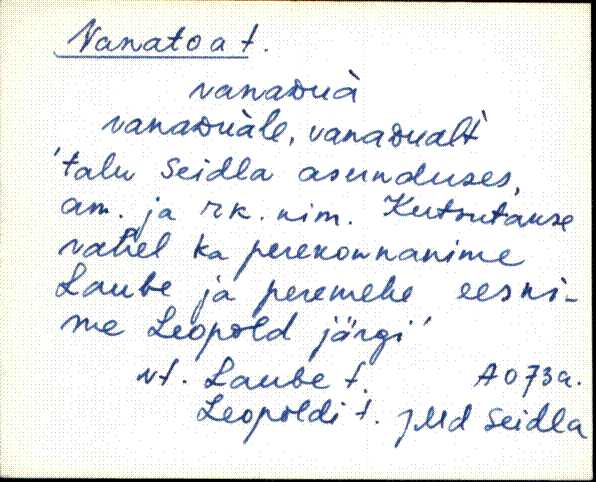 Vanatoa t.
vanaᴅuà
vanaᴅuàle, vanaᴅualt
'talu Seidla asunduses,
am. ja rk. nim. Kutsutakse
vahel ka perekonnanime
Laube ja peremehe eesni-
me Leopold järgi'
vt. Laube t. A073a.
Leopoldi t. JMd Seidla